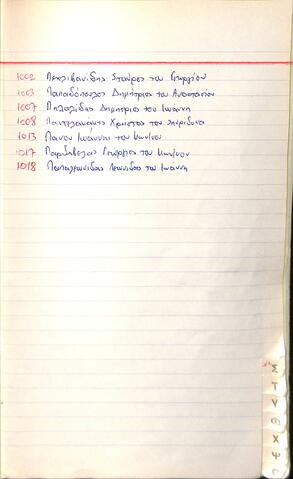 1002 Πεχλιβανίδης Σταύρος του Γεωργίου
1003 Παπαδόπουλος Δημήτριος του Αναστασίου
1007 Δημήτριος του Ιωάννη
1008 Χρήστος του Σπυρίδωνα
1013 Πάνου Ιωάννης του Κων/νου
1017 Γεώργιος του Κων/νου
1018 Παπαλεωνίδας Λεωνίδας του Ιωάννη
Σ
Τ
Υ
Φ
Χ
Ψ